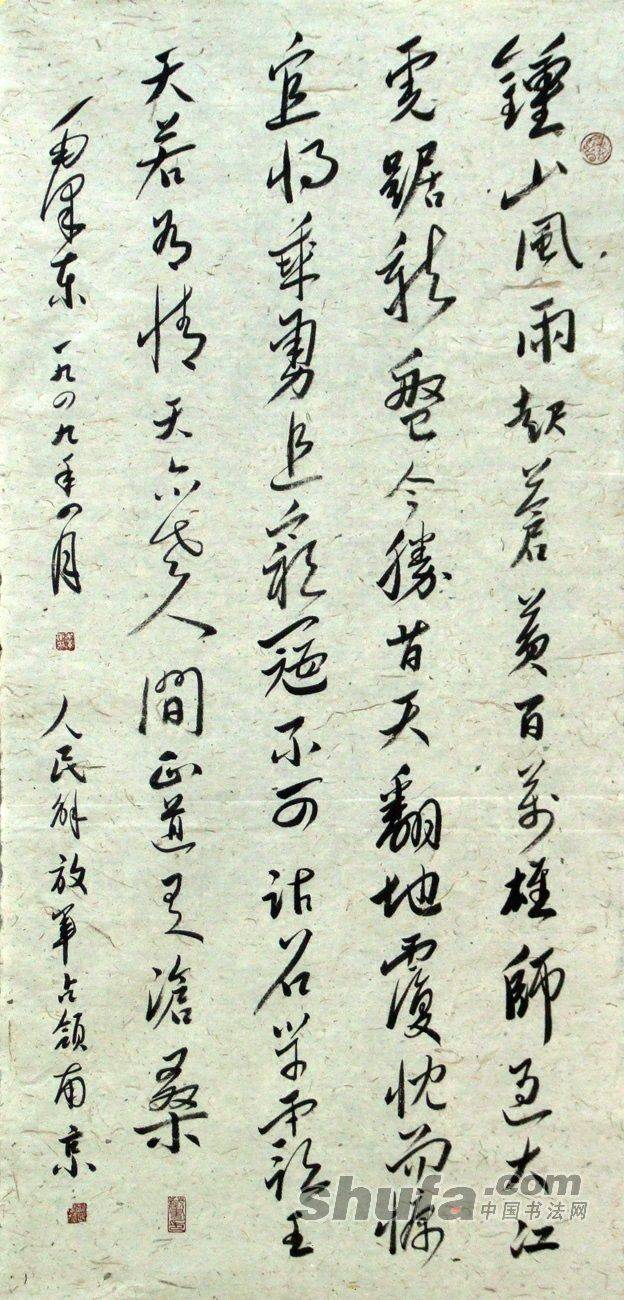 鍾山風雨起蒼黃百萬雄師過大江
虎踞龍盤今勝昔天翻地覆慨而慷
宜將乘勇追窮寇不可沽名學霸王
天若有情天亦老人間正道是滄桑
毛澤東一九四九年四月
人民解放軍占領南京
shufa.com
中国书法网